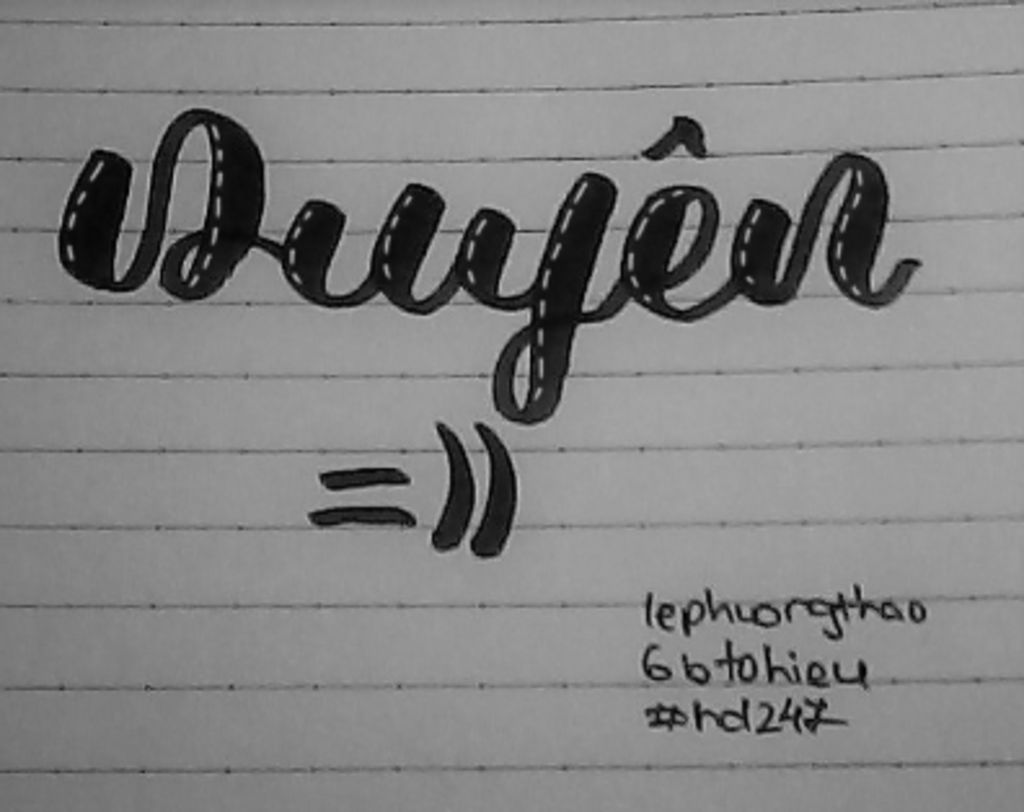 Duyên
=))
lephuongthao
6b tohieu
#hd247